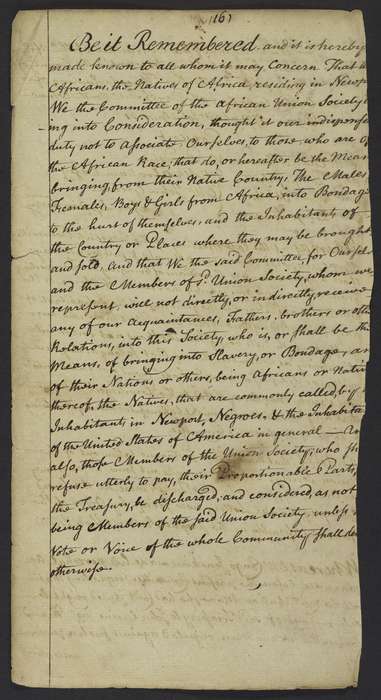 (16)
Be it Remembered and it is hereby
made known to all whom it may Concern That
Africans, the Natives of Africa, residing in Newpo
We the Committee of the African Union Society
ing into Consideration, thought it our indispensi
duty not to Associate Ourselves, to those who are of
the African Race, that do, or hereafter be the Mean
bringing, from their Native Country, The Males
Feemales, Boys & Girls from Africa, into Bondag
to the hurt of themselves, and the Inhabitants of
the Country or Places where they may be brought
and sold, And that We the said Committee for Oursel
and the Members of sd. Union Society, whom we
represent will not directly, or indirectly, receive
any of our Acquaintances, Fathers, brothers or oth
Relations, into this Society, who is, or shall be the
Means, of bringing into Slavery, or Bondage, an
of their Nations or others, being Africans or Nativ
thereof, the Natives, that are commonly called, by
Inhabitants, in Newport, Negroes, & the Inhabitan
of the United States of America in general —
also, those Members of the Union Society, who
refuse utterly to pay, their Proportionable Parts,
the Treasury, be discharged, and considered, as not
being Members of the said Union Society, unless
Vote or Voice of the whole Community shall
otherwise.